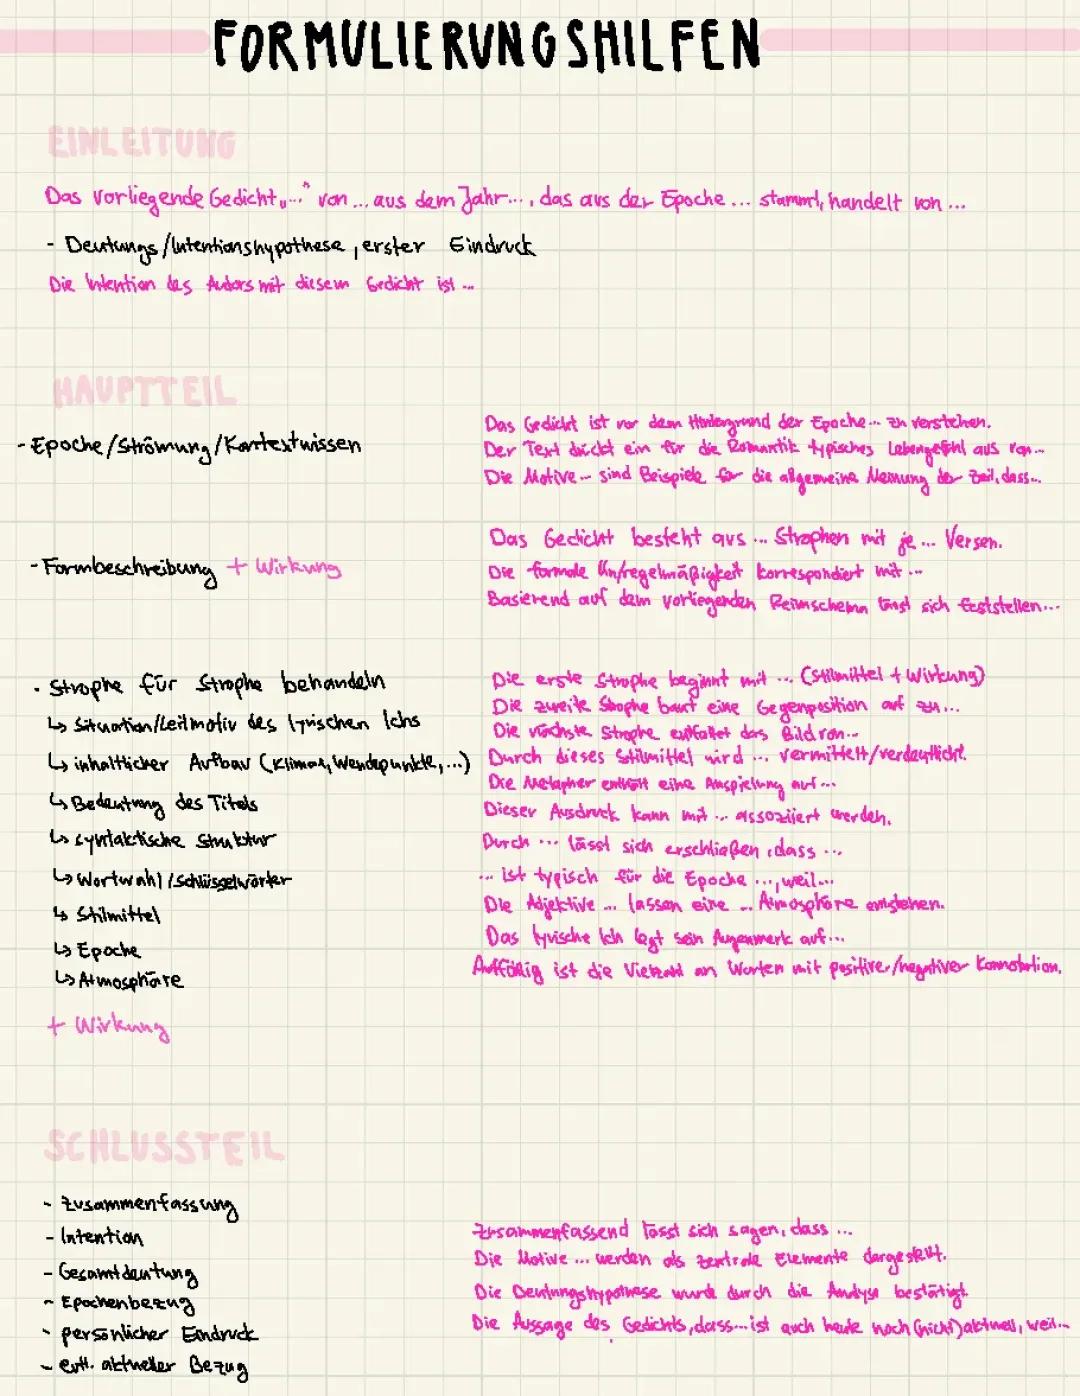 FORMULIERUNGSHILFEN
EINLEITUNG
Das vorliegende Gedicht „..." von ... aus dem Jahr..., das aus der Epoche ... stammt, handelt von ...
- Deutungs/Intentionshypothese, erster Eindruck
Die Intention des Autors mit diesem Gedicht ist ...
HAUPTTEIL
- Epoche/Strömung/Kontextwissen
Das Gedicht ist vor dem Hintergrund der Epoche... zu verstehen.
Der Text drückt ein für die Romantik typisches Lebengefühl aus von...
Die Motive... sind Beispiele für die allgemeine Meinung der Zeit, dass...
- Formbeschreibung + Wirkung
Das Gedicht besteht aus ... Strophen mit je ... Versen.
Die formale Un/regelmäßigkeit korrespondiert mit ...
Basierend auf dem vorliegenden Reimschema lässt sich feststellen...
· Strophe für Strophe behandeln
↳ Situation/Leitmotiv des lyrischen Ichs
↳ inhaltlicher Aufbau (Klimax, Wendepunkte,...)
↳ Bedeutung des Titels
↳ syntaktische Struktur
↳ Wortwahl/Schlüsselwörter
↳ Stilmittel
↳ Epoche
↳ Atmosphäre
+ Wirkung
Die erste Strophe beginnt mit ... (Stilmittel + Wirkung)
Die zweite Strophe baut eine Gegenposition auf zu...
Die nächste Strophe entfaltet das Bild von...
Durch dieses Stilmittel wird ... vermittelt/verdeutlicht.
Die Metapher enthält eine Anspielung auf...
Dieser Ausdruck kann mit ... assoziiert werden.
Durch ... lässt sich erschließen, dass ...
... ist typisch für die Epoche ..., weil...
Die Adjektive ... lassen eine ... Atmosphäre entstehen.
Das lyrische Ich legt sein Augenmerk auf...
Auffällig ist die Vielzahl an Worten mit positiver/negativer Konnotation.
SCHLUSSTEIL
- Zusammenfassung
- Intention
- Gesamtdeutung
- Epochenbezug
- persönlicher Eindruck
- evtl. aktueller Bezug
Zusammenfassend lässt sich sagen, dass ...
Die Motive ... werden als zentrale Elemente dargestellt.
Die Deutungshypothese wurde durch die Analyse bestätigt.
Die Aussage des Gedichts, dass... ist auch heute noch (nicht) aktuell, weil...